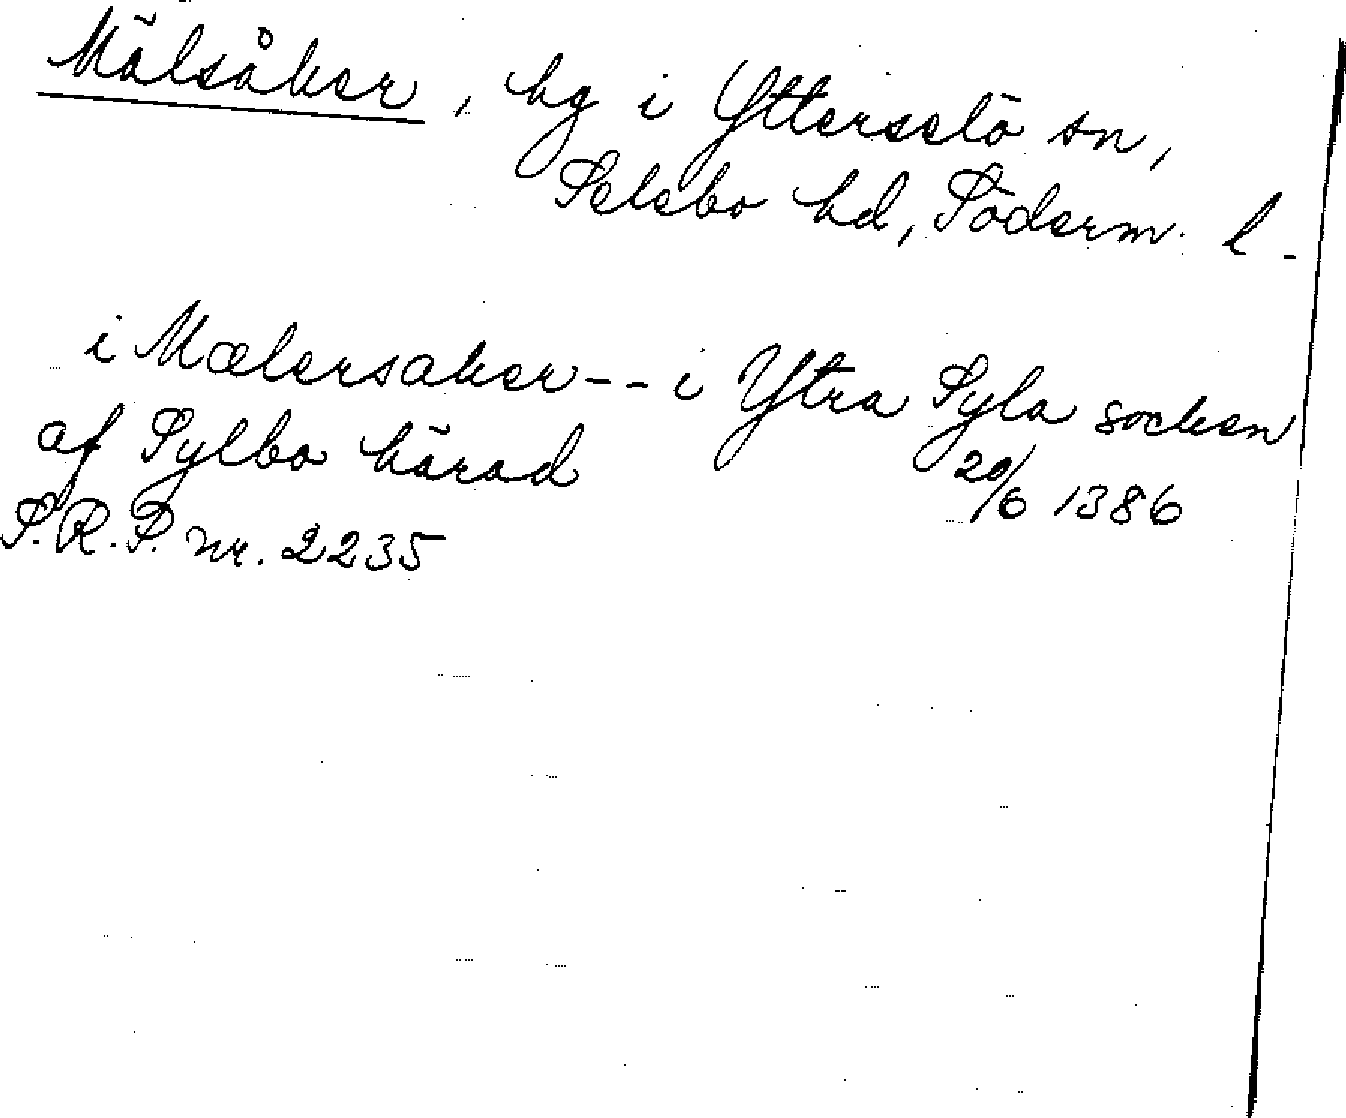 Mälsåker, hg i Ytterselö sn,
Selebo hd, Söderm. l.
i Mælersaker -- i Ytra Syla socken
af Sylbo härad 20/6 1386
S.R.P. nr. 2235